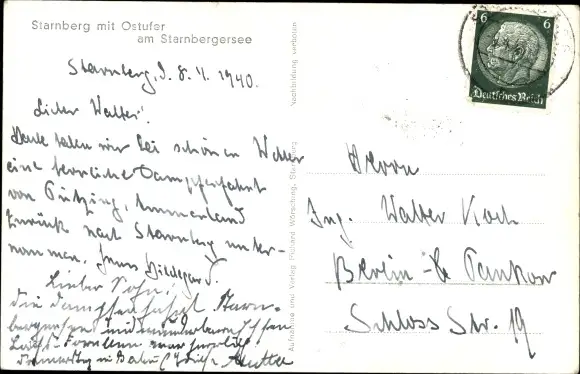 Starnberg mit Ostufer
am Starnbergersee
Starnberg, d. 8.4.1940.
Lieber Walter!
Heute haben wir bei schönem Wetter
eine herrliche Dampferfahrt
von Tutzing, Ammerland
zurück nach Starnberg unter-
nommen. Hildegard.
Lieber Sohn!
die Dampferfahrt Starn-
bergersee
Forellen war herrlich
Mutter
Nachbildung verboten
Aufnahme und Verlag Richard Wörsching, Starnberg
6 6
Deutsches Reich
Herrn
Ing. Walter Koch
Berlin - Pankow
Schloss Str. 19